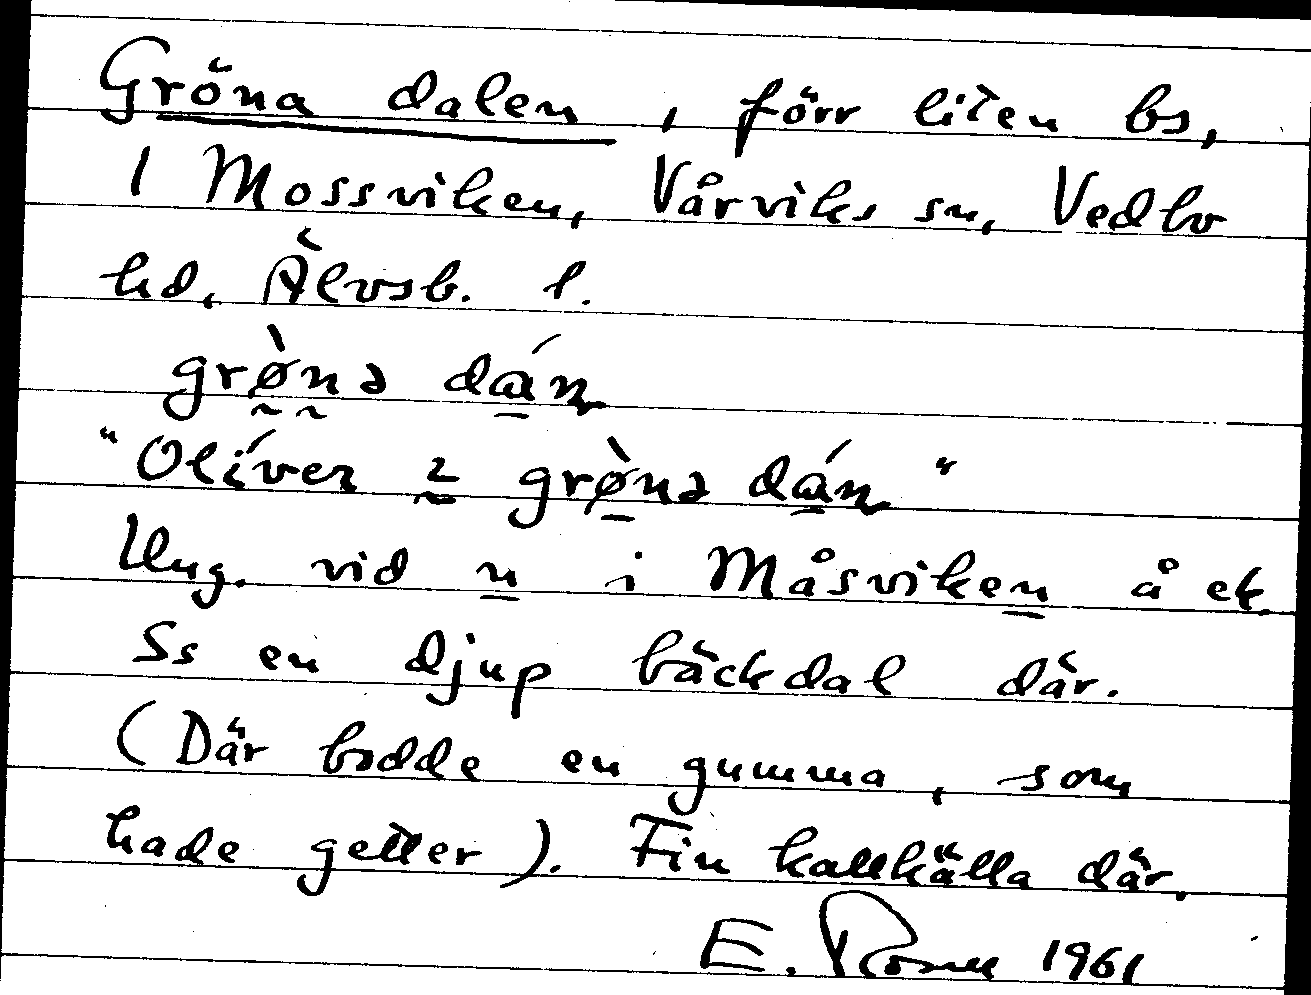 Gröna dalen, förr liten bs,
1 Mossviken, Vårviks sn, Vedbo
hd, Älvsb. l.
grø̀nə dán
"Olíver 2 grø̀nə dán"
Ung. vid n i Måsviken å ek.
Ss en djup bäckdal där.
(Där bodde en gumma, som
hade getter). Fin kallkälla där.
E. 1961